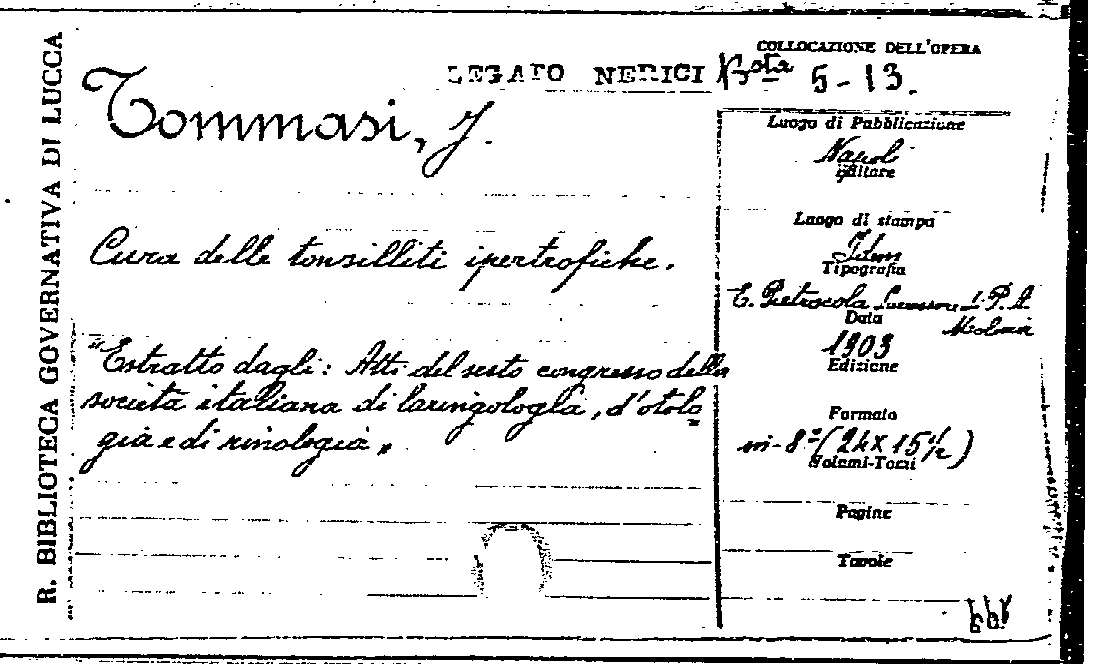 R. BIBLIOTECA GOVERNATIVA DI LUCCA
LEGATO NERICI
COLLOCAZIONE DELL'OPERA
Bsta 5-13.
Tommasi, J.
Cura delle tonsilliti ipertrofiche.
"Estratto dagli: Atti del sesto congresso della
società italiana di laringologia, d'otolo=
gia e di rinologia"
Luogo di Pubblicazione
Napoli
Editore
Luogo di stampa
Idem
Tipografia
E. Pietrocola Successore
Data
1903
Edizione
Formato
in-8º (24 x 15 1/2)
Volumi-Tomi
Pagine
Tavole